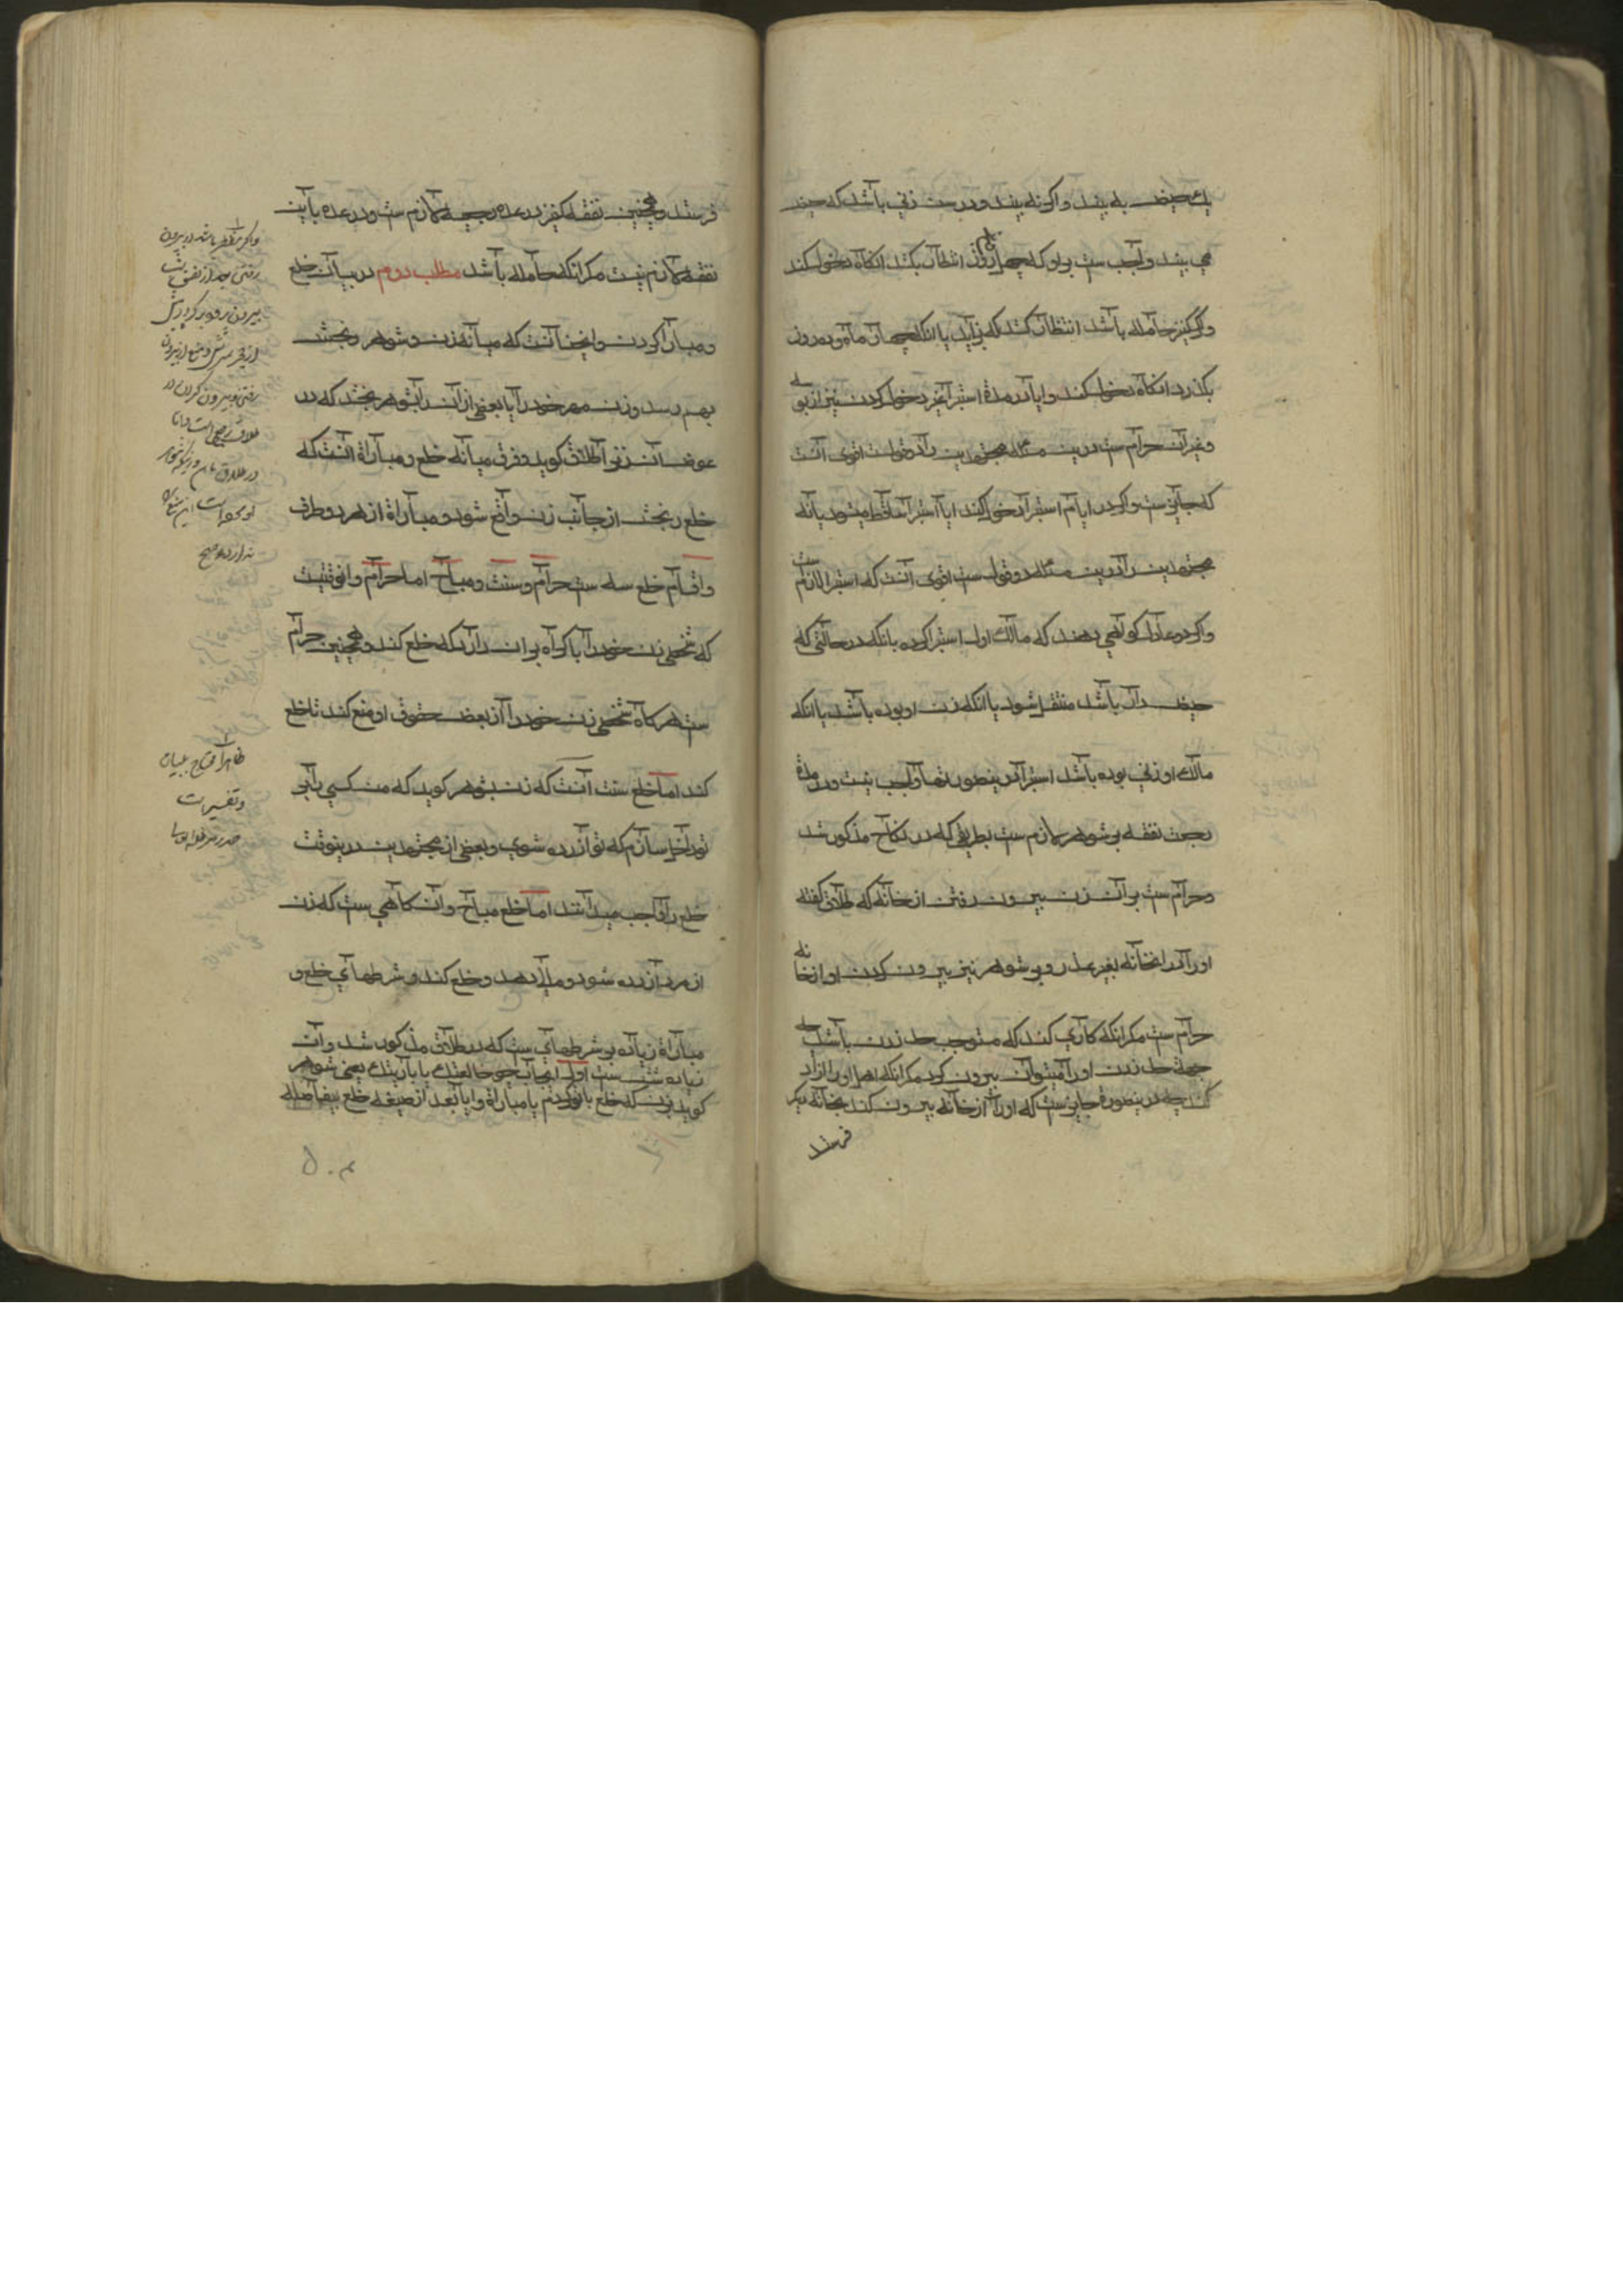 یك حیض به بیند و اگر نه بیند و در سن زنی باشد که حیض
می بیند واجب ست بر او که چهل و پنج روز انتظار بکشد انکاه دخول کند
و اگر کنیز حامله باشد انتظار کشد که بزاید یا انکه چهار ماه و ده روز
بکذرد انکاه دخول کند و ایا در مدة استبرا غیر دخول کردن نیز از بوسه
و غیر آن حرام ست درین مسئله مجتهدین را دو قولست اقوی آنست
که جایز ست و اگر در ایام استبرا دخول کند ایا استبرا ساقط میشود یا نه
مجتهدین را درین مسئله دو قول ست اقوی آنست که استبرا لازم ست
و اگر دو عادل کواهی دهند که مالك اول استبرا کرده یا انکه در حالتی که
حیض دار باشد منتقل شود یا انکه زن او بوده باشد یا انکه
مالك او زنی بوده باشد استبرا درینصورتها واجب نیست و در مدة
رجعت نفقه بر شوهر لازم ست بطریقی که در نکاح مذکور شد
و حرام ست بر آن زن بیرون رفتن از خانه که طلاق گفته
او را در انخانه بغیر عذر و بر شوهر نیز بیرون کردن او از خانه
حرام ست مکر انکه کاری کند که مستوجب حد زدن باشد چه
جهة حد زدن او را میتوان بیرون کرد مکر انکه اهل او را ازار
کند چه درینصورة جایز ست که او را از خانه بیرون کند بخانه دیکر
فرستد
فرستد و همچنین نفقه کنیز در عده رجعیه لازم ست و در عده باین
نفقه لازم نیست مکر انکه حامله باشد مطلب دوم در بیان خلع
و مبارا کردن و این چنانست که میانه زن و شوهر رنجش
بهم رسد و زن مهر خود را یا بعضی از آن را بشوهر بخشد که در
عوض آن زنرا طلاق کوید و فرق میانه خلع و مباراة آنست که
خلع رنجش از جانب زن واقع شود و مباراة از هر دو طرف
و اقسام خلع سه ست حرام و سنت و مباح اما حرام و انوقتیست
که شخصی زن خود را باکراه بر ان دارد که خلع کند و همچنین حرام
ست هرکاه شخصی زن خود را از بعض حقوق او منع کند تا خلع
کند اما خلع سنت آنست که زن بشوهر کوید که من کسی را بر
تو داخل سازم که تو آزرده شوی و بعضی از مجتهدین درینوقت
خلع را واجب میدانند اما خلع مباح و آن کاهی ست که زن
از مرد آزرده شود و مال دهد و خلع کند و شرطهای خلع و
مباراة زیاده بر شرطهای ست که در طلاق مذکور شد و آن
زیاده شش ست اول ایجاب چو خالعتك یا بارئتك یعنی شوهر
کوید بزن که خلع با تو کردم یا مباراة و ایا بعد از صیغه خلع بیفاصله
رفتن
بیرون
رفتن و بیرون کردن در
طلاق رجعی است و اما
در طلاق باین
ظاهرا محتاج به بیان